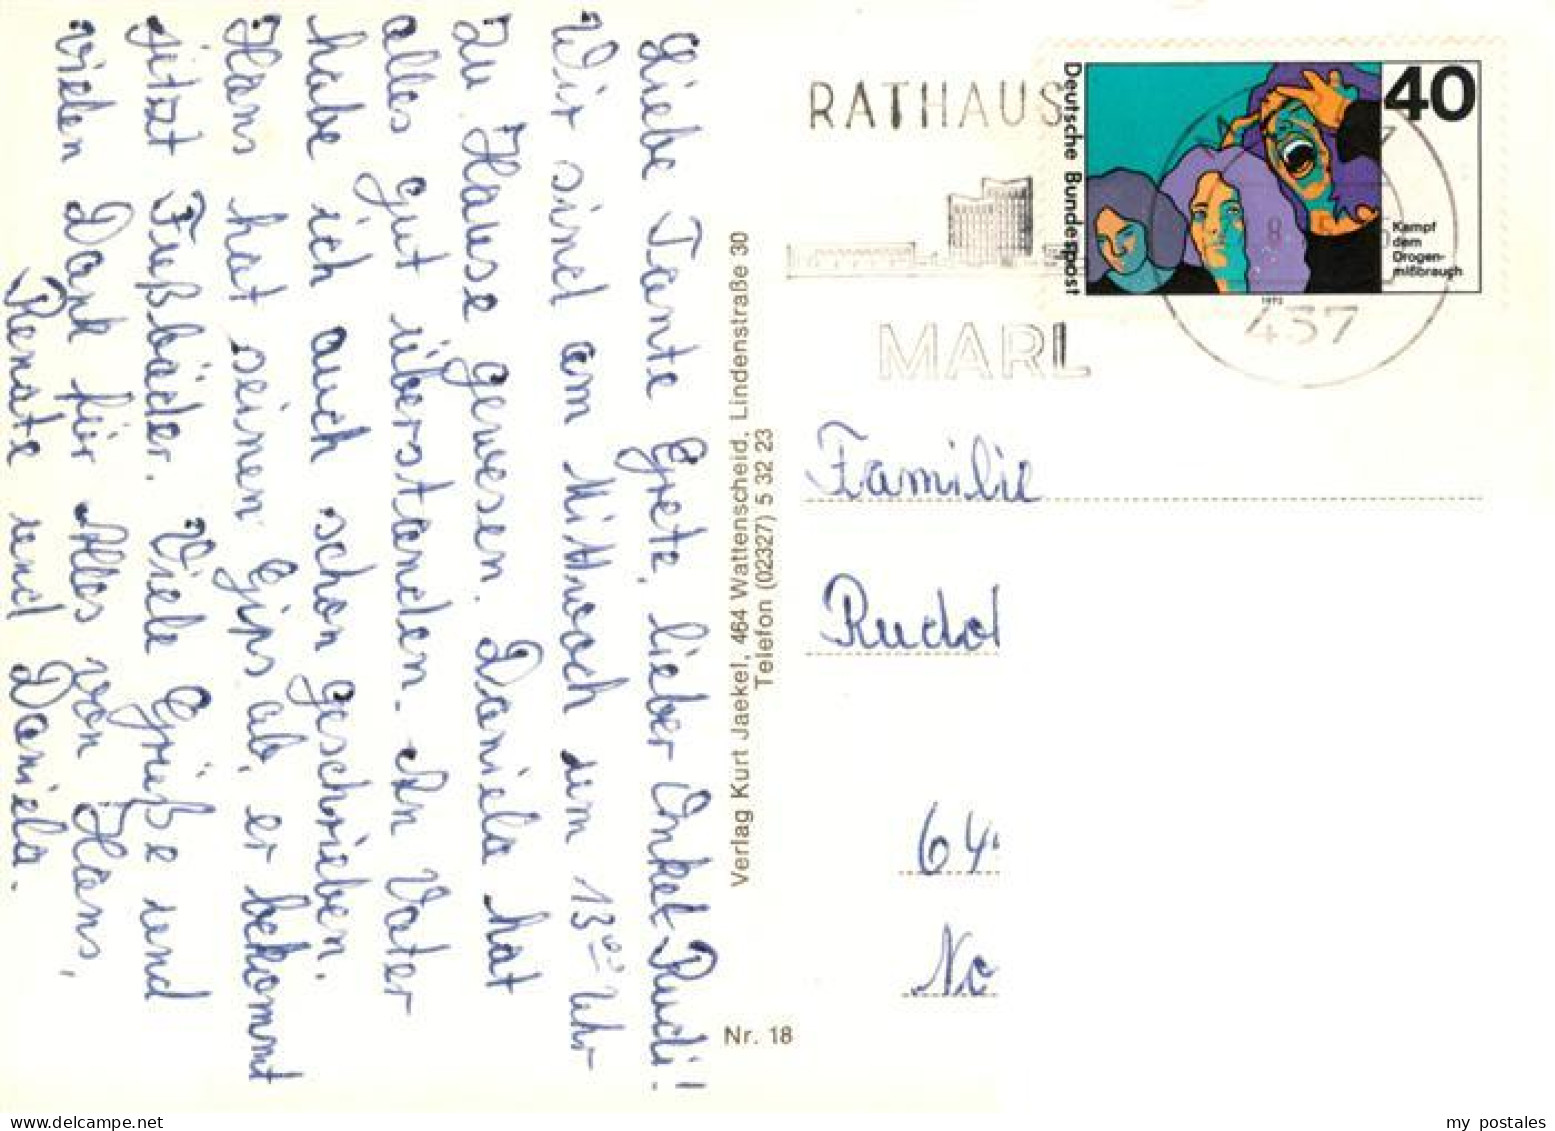 Liebe Tante Grete, lieber Onkel Rudi!
Wir sind am Mittwoch um 13⁰⁰ Uhr
zu Hause gewesen. Daniela hat
alles gut überstanden. An Vater
habe ich auch schon geschrieben.
Hans hat seinen Gips ab, er bekommt
jitzt Fußbäder. Viele Grüße und
vielen Dank für Alles von Hans,
Renate und Daniela.
Verlag Kurt Jaekel, 464 Wattenscheid, Lindenstraße 30
Telefon (02327) 5 32 23
Nr. 18
RATHAUS
MARL
437
Deutsche Bundespost
40
Kampf
dem
Drogen-
mißbrauch
1975
Familie
Rudol
64
No
my postales